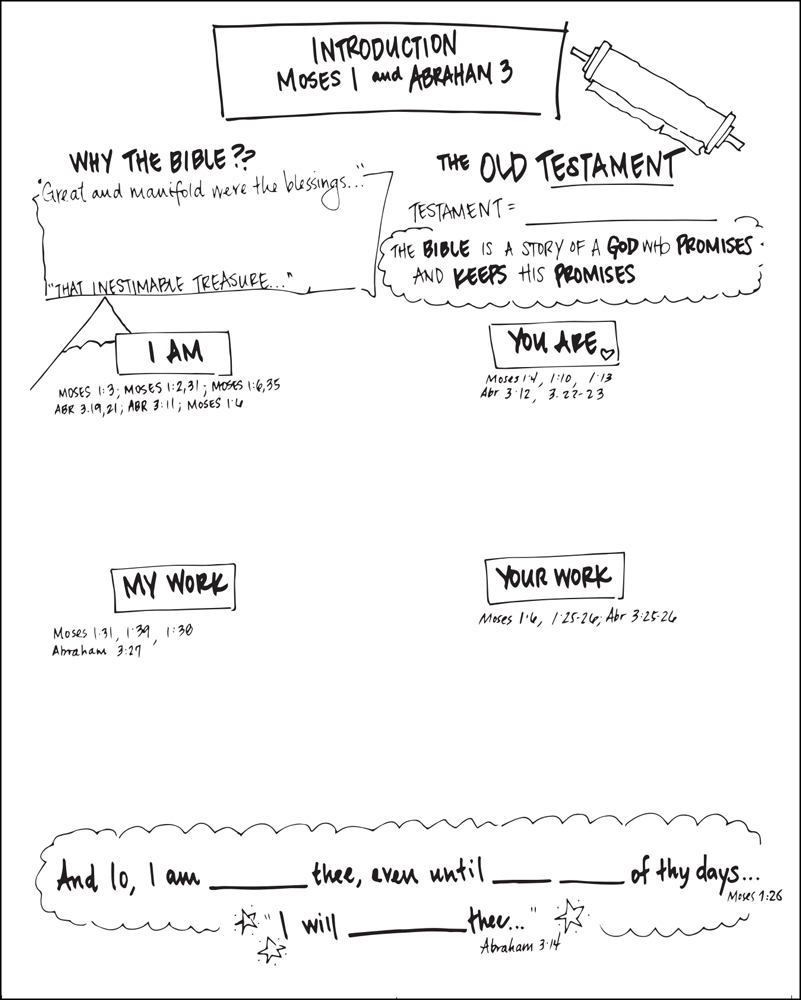 INTRODUCTION
MOSES 1 and ABRAHAM 3
WHY THE BIBLE??
"Great and manifold were the blessings..."
"THAT INESTIMABLE TREASURE..."
THE OLD TESTAMENT
TESTAMENT = ____________
THE BIBLE IS A STORY OF A GOD WHO PROMISES
AND KEEPS HIS PROMISES
I AM
MOSES 1:3; MOSES 1:2,31; MOSES 1:6,35
ABR 3:19,21; ABR 3:11; MOSES 1:6
YOU ARE
Moses 1:4, 1:10, 1:13
Abr 3:12, 3:22-23
MY WORK
Moses 1:31, 1:39, 1:30
Abraham 3:27
YOUR WORK
Moses 1:6, 1:25-26; Abr 3:25-26
And lo, I am ______ thee, even until ____ ____ of thy days...
Moses 1:26
"I will ________ thee..."
Abraham 3:14